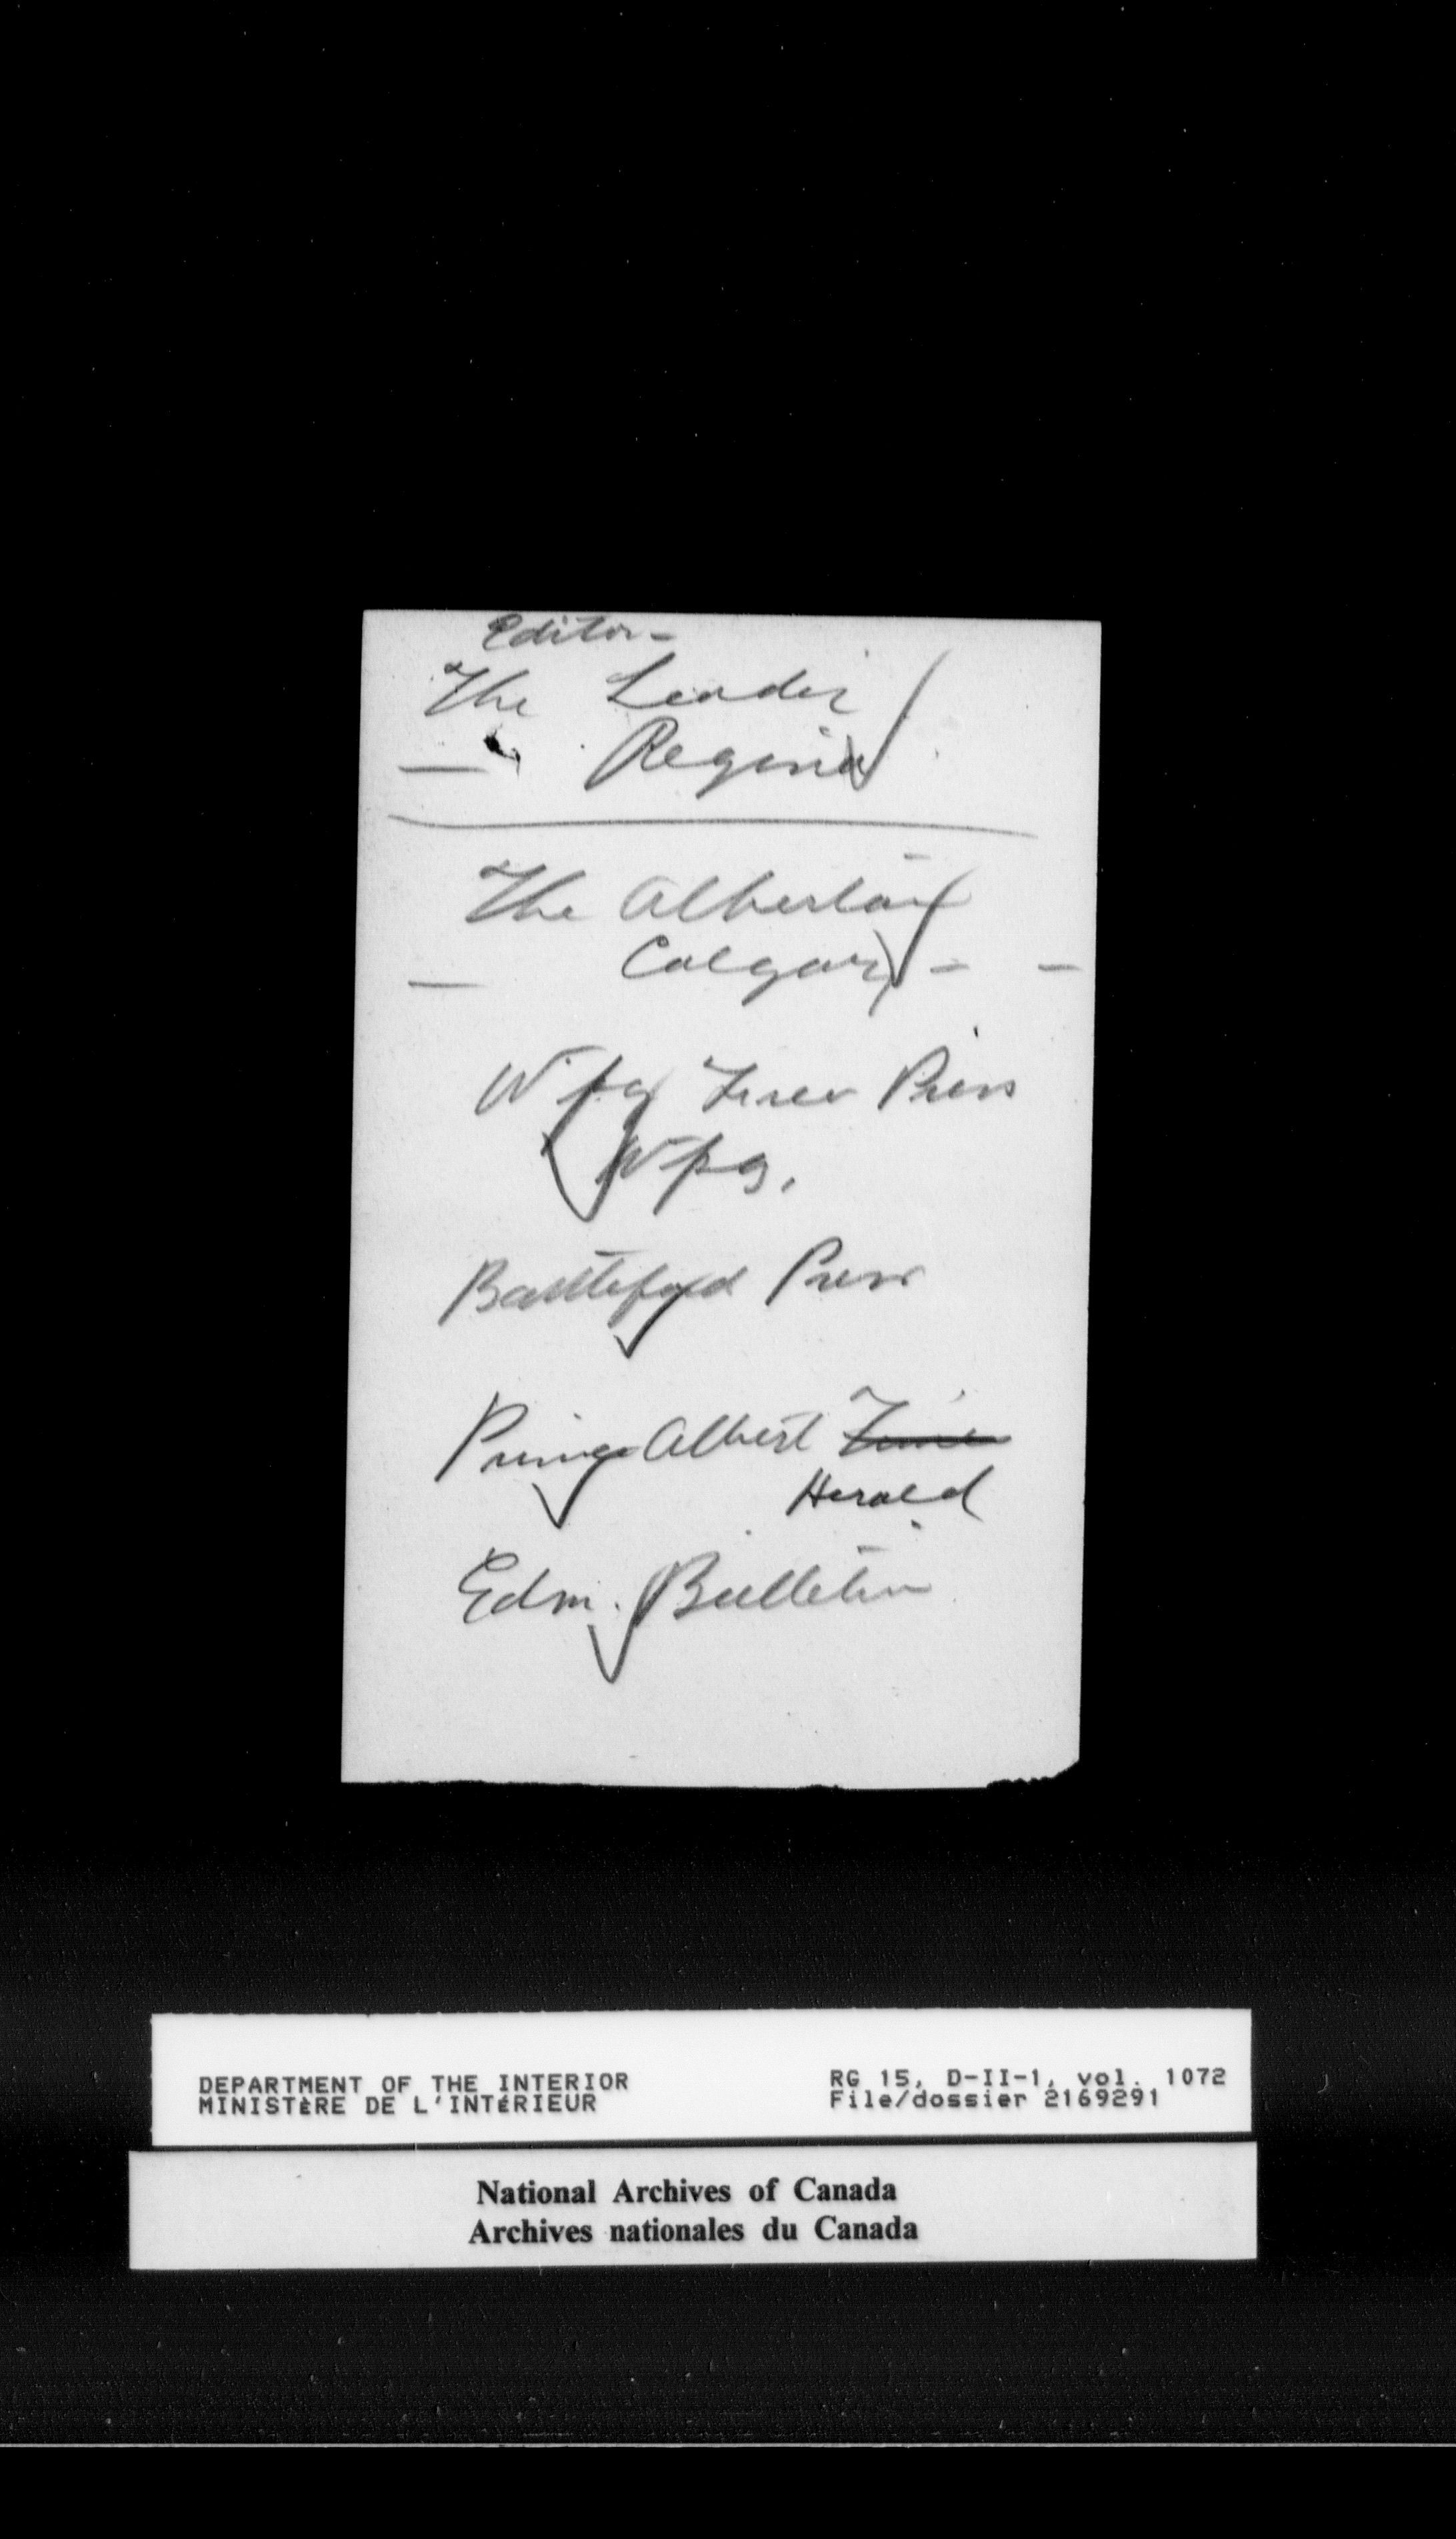 Editor -
The Leader
Regina
The Albertan
Calgary
Wpg Free Press
Wpg.
Battleford Press
Prince Albert Times
Herald
Edm. Bulletin
DEPARTMENT OF THE INTERIOR
MINISTÈRE DE L'INTÉRIEUR
RG 15, D-II-1, vol. 1072
File/dossier 2169291
National Archives of Canada
Archives nationales du Canada